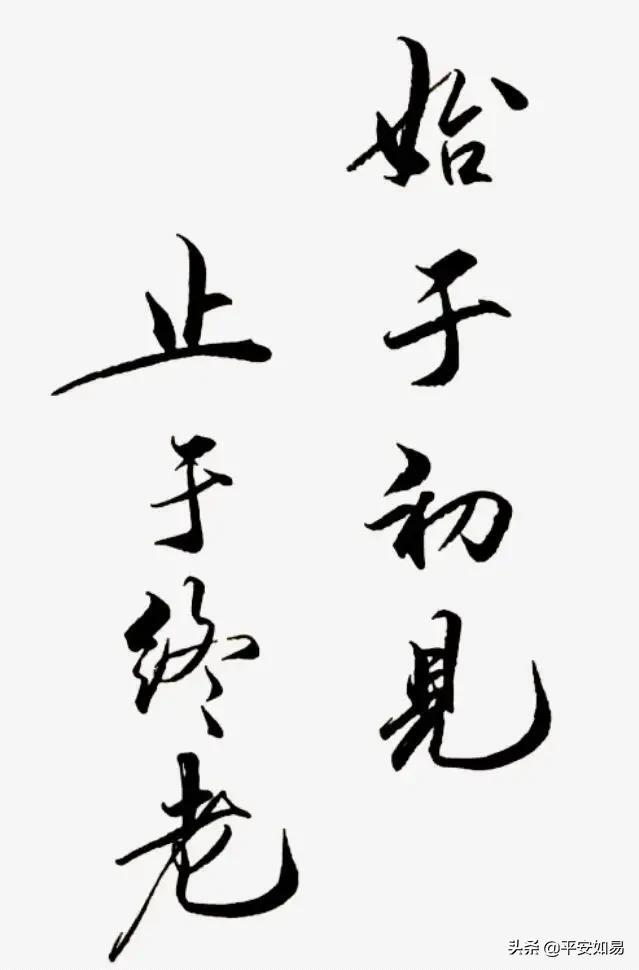 始于初見
止于终老
头杀 @平安如易